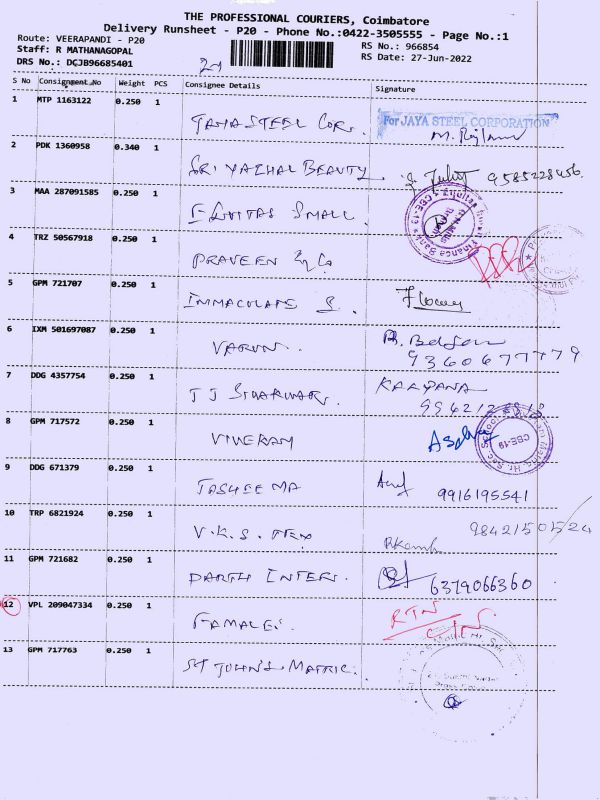 THE PROFESSIONAL COURIERS, Coimbatore
Delivery Runsheet - P20 - Phone No.:0422-3505555 - Page No.:1
Route: VEERAPANDI - P20 RS No.: 966854
Staff: R MATHANAGOPAL RS Date: 27-Jun-2022
DRS No.: DCJB96685401
S No Consignment No Weight PCS Consignee Details Signature
1 MTP 1163122 0.250 1 JAYA STEEL COR. For JAYA STEEL CORPORATION
2 PDK 1360958 0.340 1 SRI YAZHAL BEAUTY 9585228456
3 MAA 287091585 0.250 1 EQUITAS SMALL
4 TRZ 50567918 0.250 1 PRAVEEN & Co
5 GPM 721707 0.250 1 IMMACULATE S.
6 IXM 501697087 0.250 1 VARUN
9360677779
7 DDG 4357754 0.250 1 T J KALPANA
8 GPM 717572 0.250 1 VIVEKAM
CBE-19
9 DDG 671379 0.250 1 9916195541
10 TRP 6821924 0.250 1 V.K.S. TEX
11 GPM 721682 0.250 1 PARTH INTER. 6379066360
12 VPL 209047334 0.250 1 RTN
13 GPM 717763 0.250 1 ST JOHN'S MATRIC.